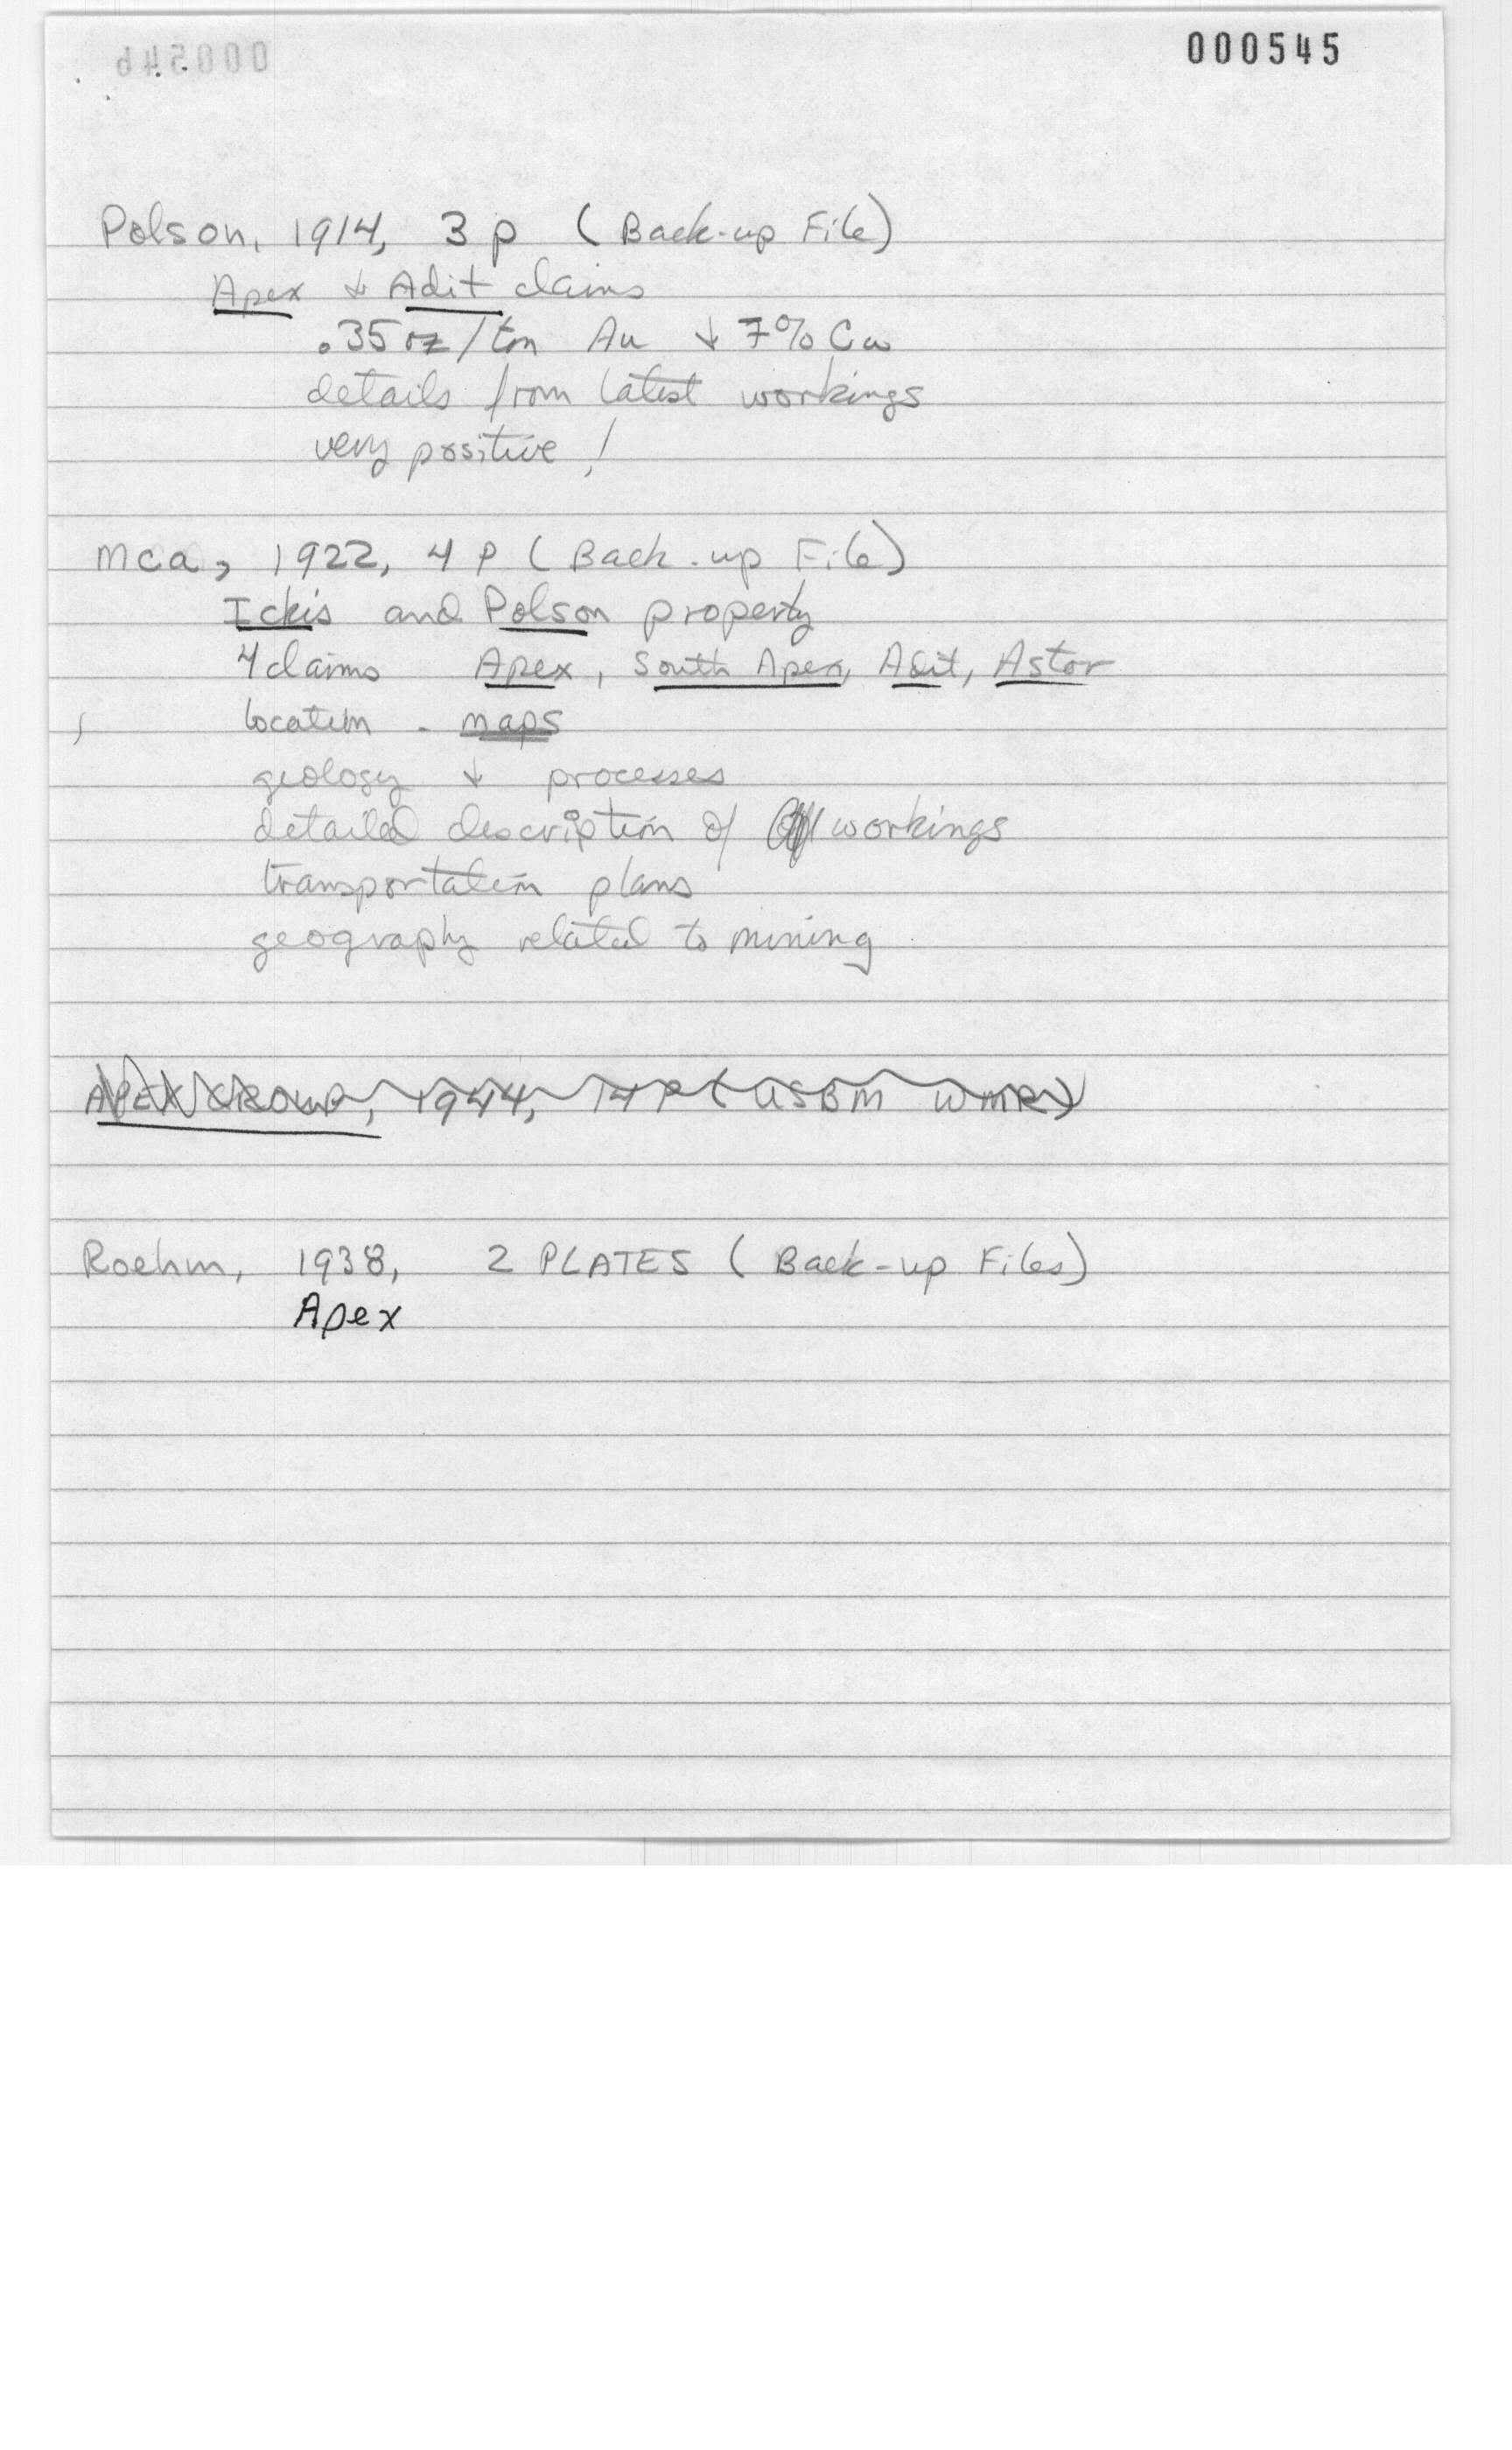 000545
Polson, 1914, 3 p (Back-up File)
Apex & Adit claims
.35 oz/ton Au & 7% Cu
details from latest workings
very positive!
MCA, 1922, 4 p (Back-up File)
Ickis and Polson property
4 claims Apex, South Apex, Adit, Astor
location - maps
geology & processes
detailed description of workings
transportation plans
geography related to mining
APEX GROUP, 1944, 14 P (USBM WMR)
Roehm, 1938, 2 PLATES (Back-up Files)
Apex